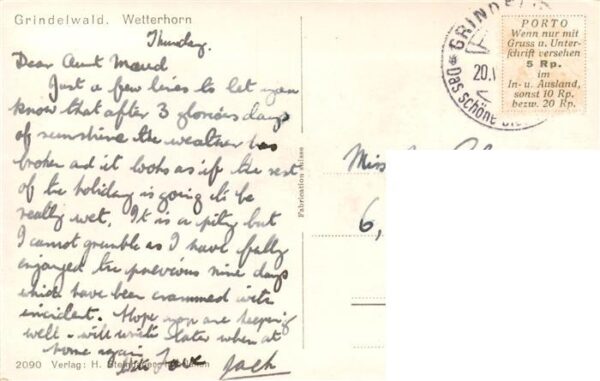 Grindelwald. Wetterhorn
Thursday.
Dear Aunt Maud
Just a few lines to let you
know that after 3 glorious days
of sunshine the weather has
broken and it looks as if the rest
of the holiday is going to be
really wet. It is a pity but
I cannot grumble as I have fully
enjoyed the previous nine days
which have been crammed with
incident. Hope you are keeping
well - will write later when at
home again
Love Jack
2090 Verlag: H.
Fabrication suisse
GRINDEL
20.
Das schöne
PORTO
Wenn nur mit
Gruss u. Unter-
schrift versehen
5 Rp.
im
In- u. Ausland,
sonst 10 Rp.
bezw. 20 Rp.
Miss
6,